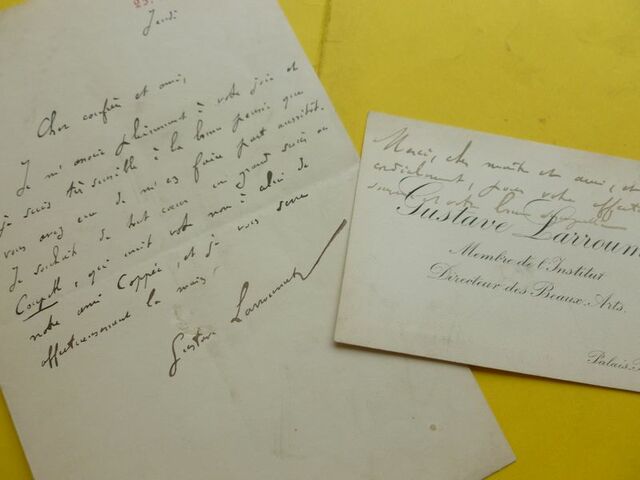 23.
Jeudi
Cher confrère et ami,
Je m'associe pleinement à votre joie et
je suis très sensible à la bonne pensée que
vous avez eue de m'en faire part aussitôt.
Je souhaite de tout cœur un grand succès au
qui unit votre nom à celui de
notre ami Coppée, et je vous serre
affectueusement la main,
Gustave Larroumet
Merci, cher maître et ami, et
cordialement, pour votre
votre bonne
Gustave Larroum
Membre de l'Institut
Directeur des Beaux-Arts.
Palais